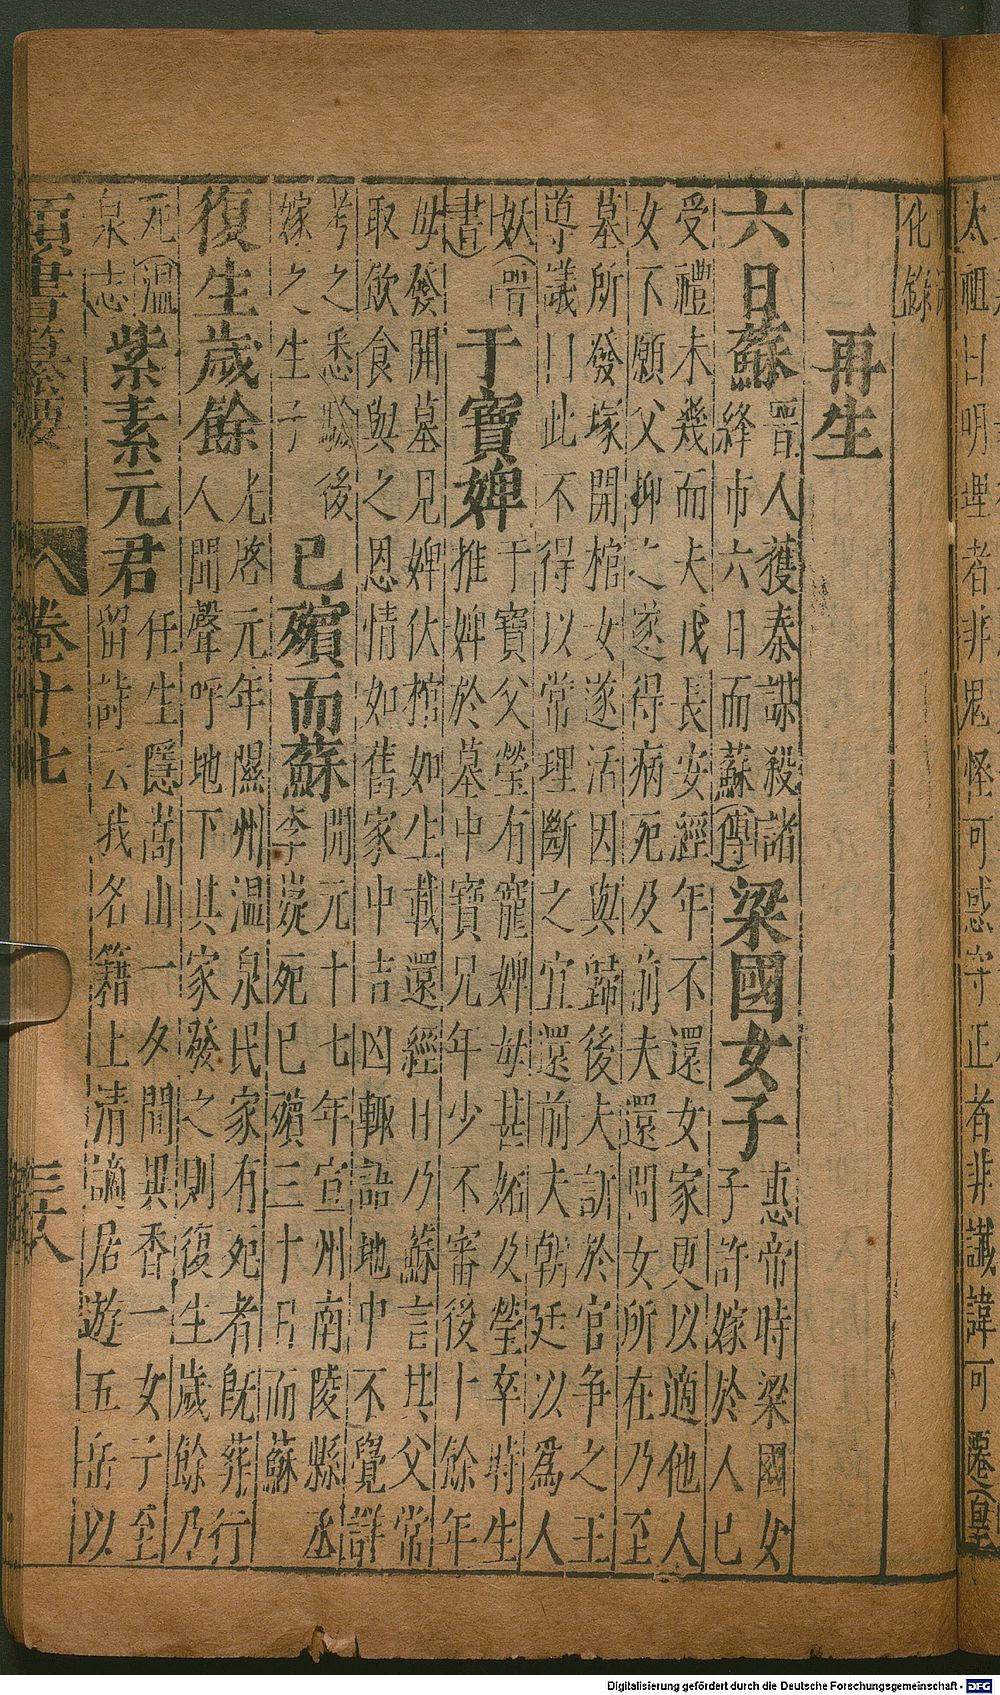 太祖曰明理者非鬼怪可惑守正者非讖緯可遷(皇
化錄
再生
六日蘇
晉人獲秦諜殺諸
絳市六日而蘇(傳)
梁國女子
惠帝時梁國女
子許嫁於人已
受禮未幾而夫戍長安經年不還女家更以適他人
女不願父抑之遂得病死及前夫還問女所在乃至
墓所發塚開棺女遂活因與歸後夫訴於官爭之王
導議曰此不得以常理斷之宜還前夫朝廷以爲人
妖(晉
書)
于寶婢
于寶父瑩有寵婢母甚妬及瑩卒時生
推婢於墓中寶兄年少不審後十餘年
母發開墓見婢伏棺如生載還經日乃蘇言其父常
取飲食與之恩情如舊家中吉凶輙語地中不覺詳
考之悉驗後
嫁之生子
已殯而蘇
開元十七年宣州南陵縣丞
李嶷死已殯三十日而蘇
復生歲餘
光啓元年隰州温泉民家有死者既葬行
人聞聲呼地下其家發之則復生歲餘乃
死(温
泉志)
紫素元君
任生隱嵩山一夕聞異香一女子至
留詩云我名籍上清謫居遊五岳以
類書纂要
卷十七
Digitalisierung gefördert durch die Deutsche Forschungsgemeinschaft - DFG